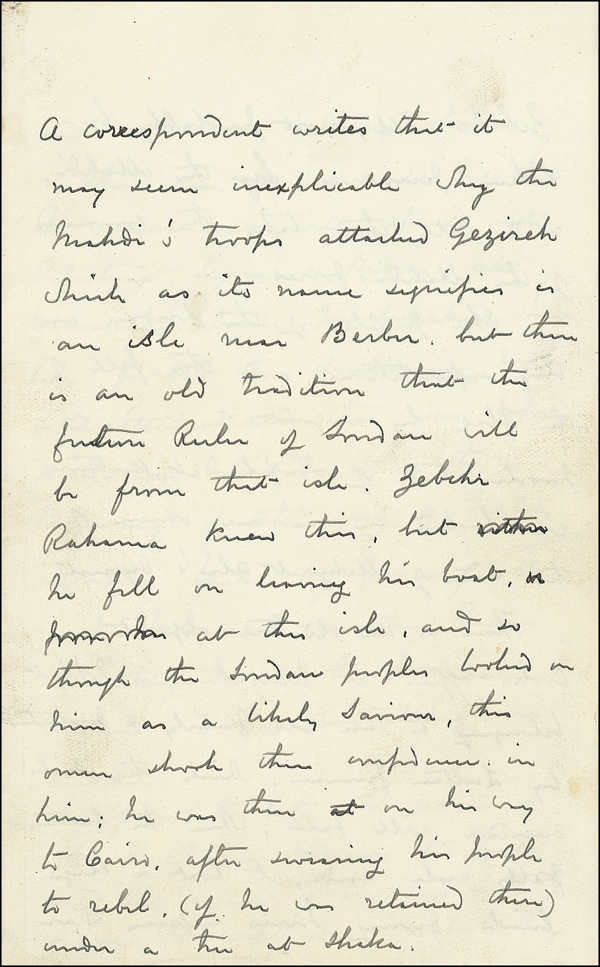 A correspondent writes that it
may seem inexplicable why the
Mahdi's troops attacked Gezireh
which as its name signifies is
an isle near Berber. but there
is an old tradition that the
future Ruler of Soudan will
be from that isle. Zebehr
Rahama knew this, but
he fell on leaving his boat,
at this isle, and so
though the Soudan peoples looked on
him as a likely Saviour, this
omen shook their confidence in
him; he was then at on his way
to Cairo, after swearing his people
to rebel, (if he was retained there)
under a tree at Shaka.